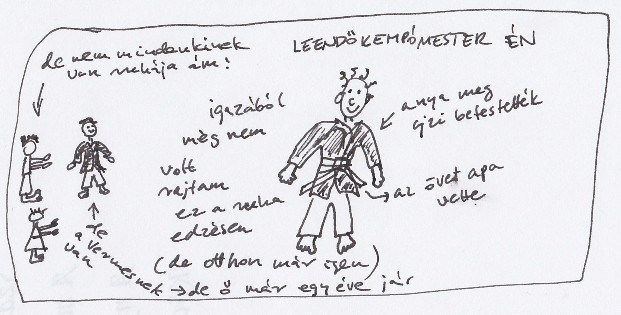 LEENDŐ KEMPÓMESTER ÉN
de nem mindenkinek
van ruhája ám!
igazából
még nem
volt
rajtam
ez a ruha
edzésen
(de otthon már igen)
anya meg
gizi befestették
az övet apa
vette
de
a Vermesnek
van
de ő már egy éve jár